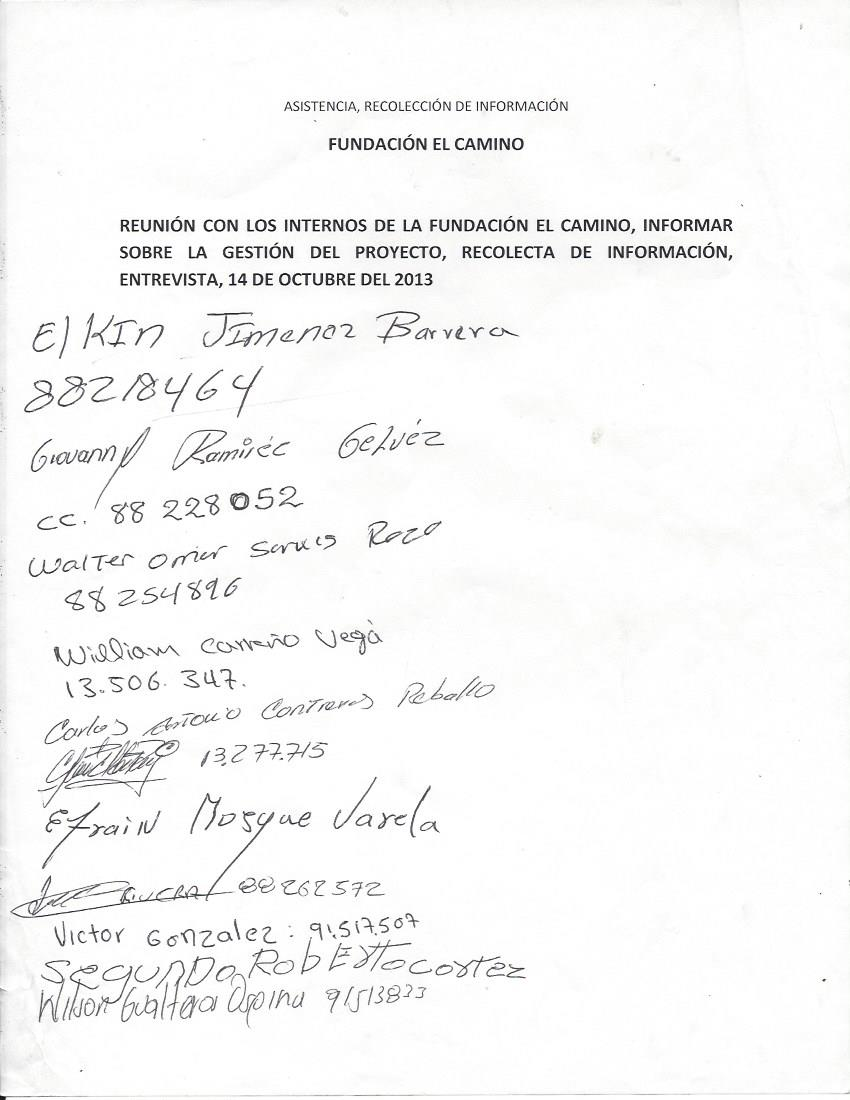 ASISTENCIA, RECOLECCIÓN DE INFORMACIÓN
FUNDACIÓN EL CAMINO
REUNIÓN CON LOS INTERNOS DE LA FUNDACIÓN EL CAMINO, INFORMAR
SOBRE LA GESTIÓN DEL PROYECTO, RECOLECTA DE INFORMACIÓN,
ENTREVISTA, 14 DE OCTUBRE DEL 2013
ElKIn Jimenez Barrera
88218464
Giovanny Ramirez Gelvéz
CC. 88 228052
Walter Omar Rozo
88254896
William Carreño Vega
13.506.347.
Carlos Antonio Contreras
13.277.715
Efrain Mosque Varela
RIVERA 88262572
Victor Gonzalez: 91.517.507
SEgunDo RobErto cortez
Wilson Ospina 91513833